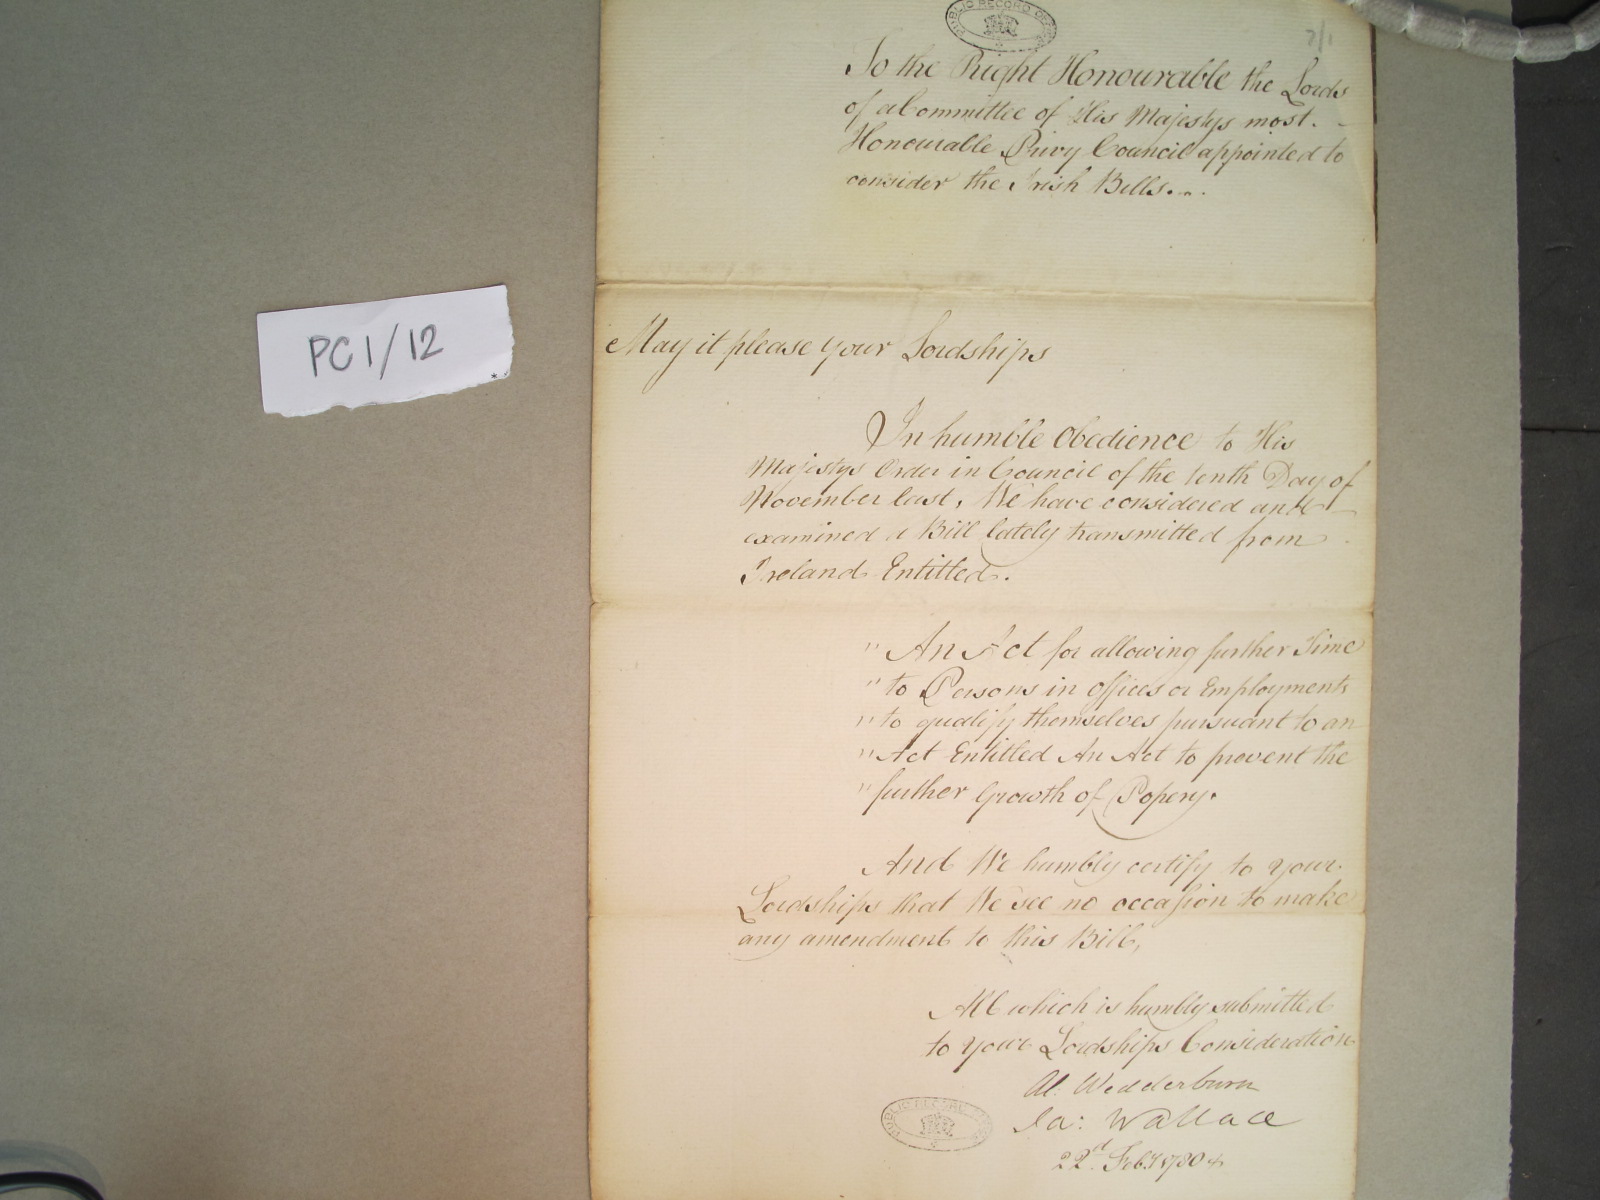 PUBLIC RECORD OFFICE
2/1
To the Right Honourable the Lords
of a Committee of His Majestys most
Honourable Privy Council appointed to
consider the Irish Bills...
PC1/12
May it please your Lordships
In humble Obedience to His
Majestys Order in Council of the tenth Day of
November last, We have considered and
examined a Bill lately transmitted from
Ireland Entitled.
" An Act for allowing further Time
" to Persons in offices or Employments
" to qualify themselves pursuant to an
" Act Entitled An Act to prevent the
" further Growth of Popery.
And We humbly certify to your
Lordships that We see no occasion to make
any amendment to this Bill,
All which is humbly submitted
to your Lordships Consideration
Al: Wedderburn
Ja: Wallace
PUBLIC RECORD OFFICE
22d. Feby 1780